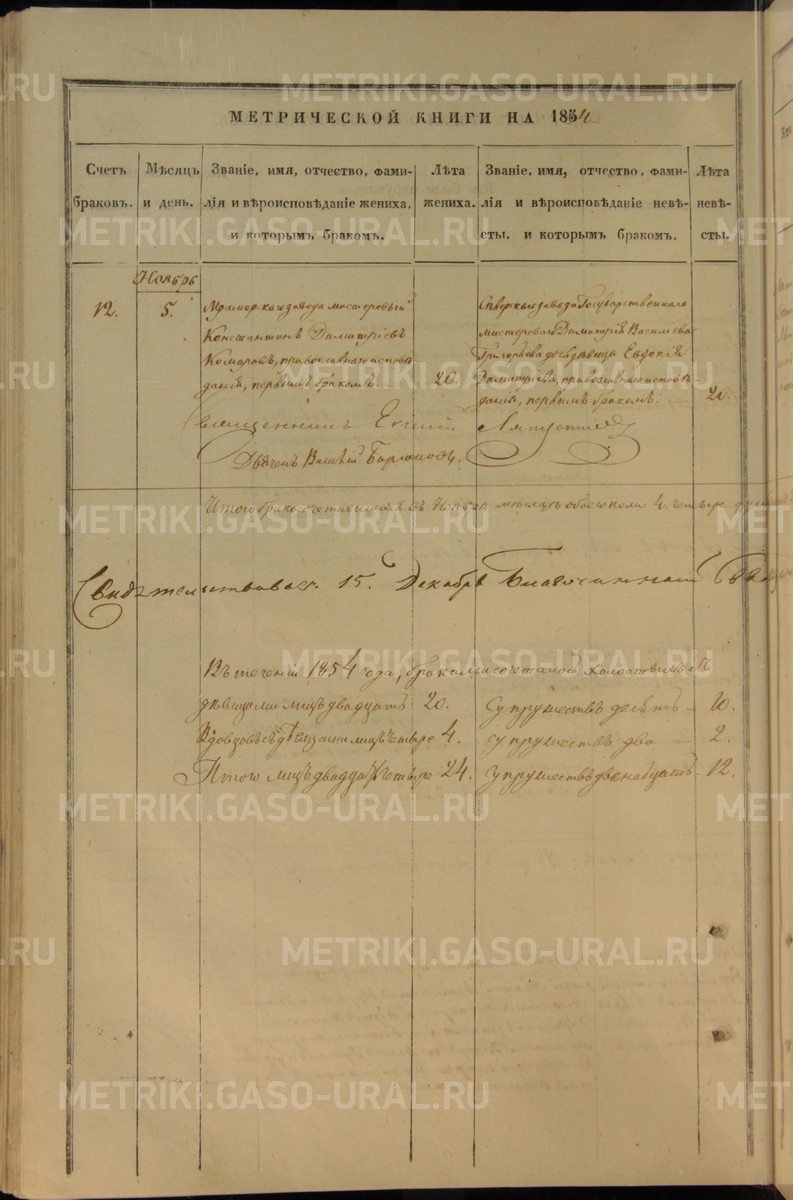 МЕТРИЧЕСКОЙ КНИГИ НА 1854
Счетъ браковъ.
Мѣсяцъ и день.
Званіе, имя, отчество, фами-
лія и вѣроисповѣданіе жениха,
и которымъ бракомъ.
Лѣта жениха.
Званіе, имя, отчество, фами-
лія и вѣроисповѣданіе невѣ-
сты, и которымъ бракомъ.
Лѣта невѣ-
сты.
Ноябрь
12.
5.
Мраморскаго завода мастеровый
Константинъ Димитріевъ
Комаровъ, православнаго исповѣ
данія, первымъ бракомъ.
20.
Сѣверскаго завода Государственнаго
мастероваго Димитрія Васильева
Григорьева дочь дѣвица Евдокія
Димитріева, православнаго исповѣ
данія, первымъ бракомъ.
20.
Священникъ Евгеній
Дьячекъ Василій
Итого бракосочетавшихся въ Ноябрѣ мѣсяцѣ обоего пола 4. четыре
Свидѣтельствовалъ. 15. Декабря Благочинный
Въ теченіи 1854 года, бракомъ сочеталось холостыхъ съ
дѣвицами лицъ двадцать 20. супружествъ десять 10.
Вдовцовъ съ дѣвицами лицъ четыре 4. супружествъ два 2.
Итого лицъ двадцать четыре 24. супружествъ двенадцать 12.
METRIKI.GASO-URAL.RU